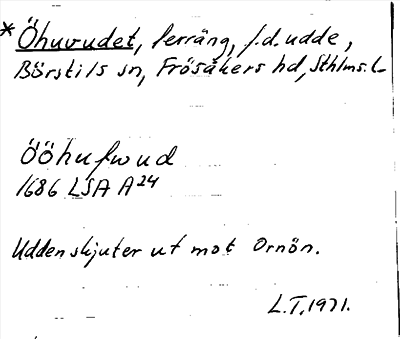 *Öhuvudet, terräng, f.d. udde,
Börstils sn, Frösåkers hd, Sthlms. L
Ööhufwud
1686 LSA A24
Udden skjuter ut mot Ornön.
L.T. 1971.